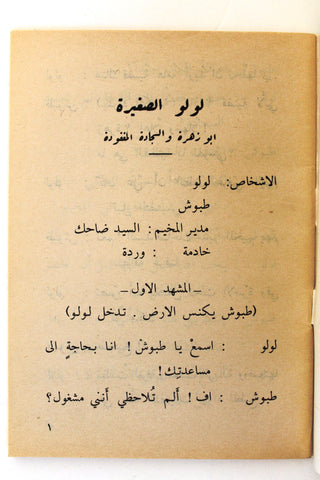 لولو الصغيرة
ابو زهرة والسجادة المفقودة
الاشخاص: لولو
طبوش
مدير المخيم : السيد ضاحك
خادمة : وردة
ـ المشهد الاول ـ
(طبوش يكنس الارض . تدخل لولو)
لولو : اسمعْ يا طبوش ! انا بحاجةٍ الى
مساعدتِك !
طبوش : اف ! ألم تُلاحظي أنني مشغول؟
١